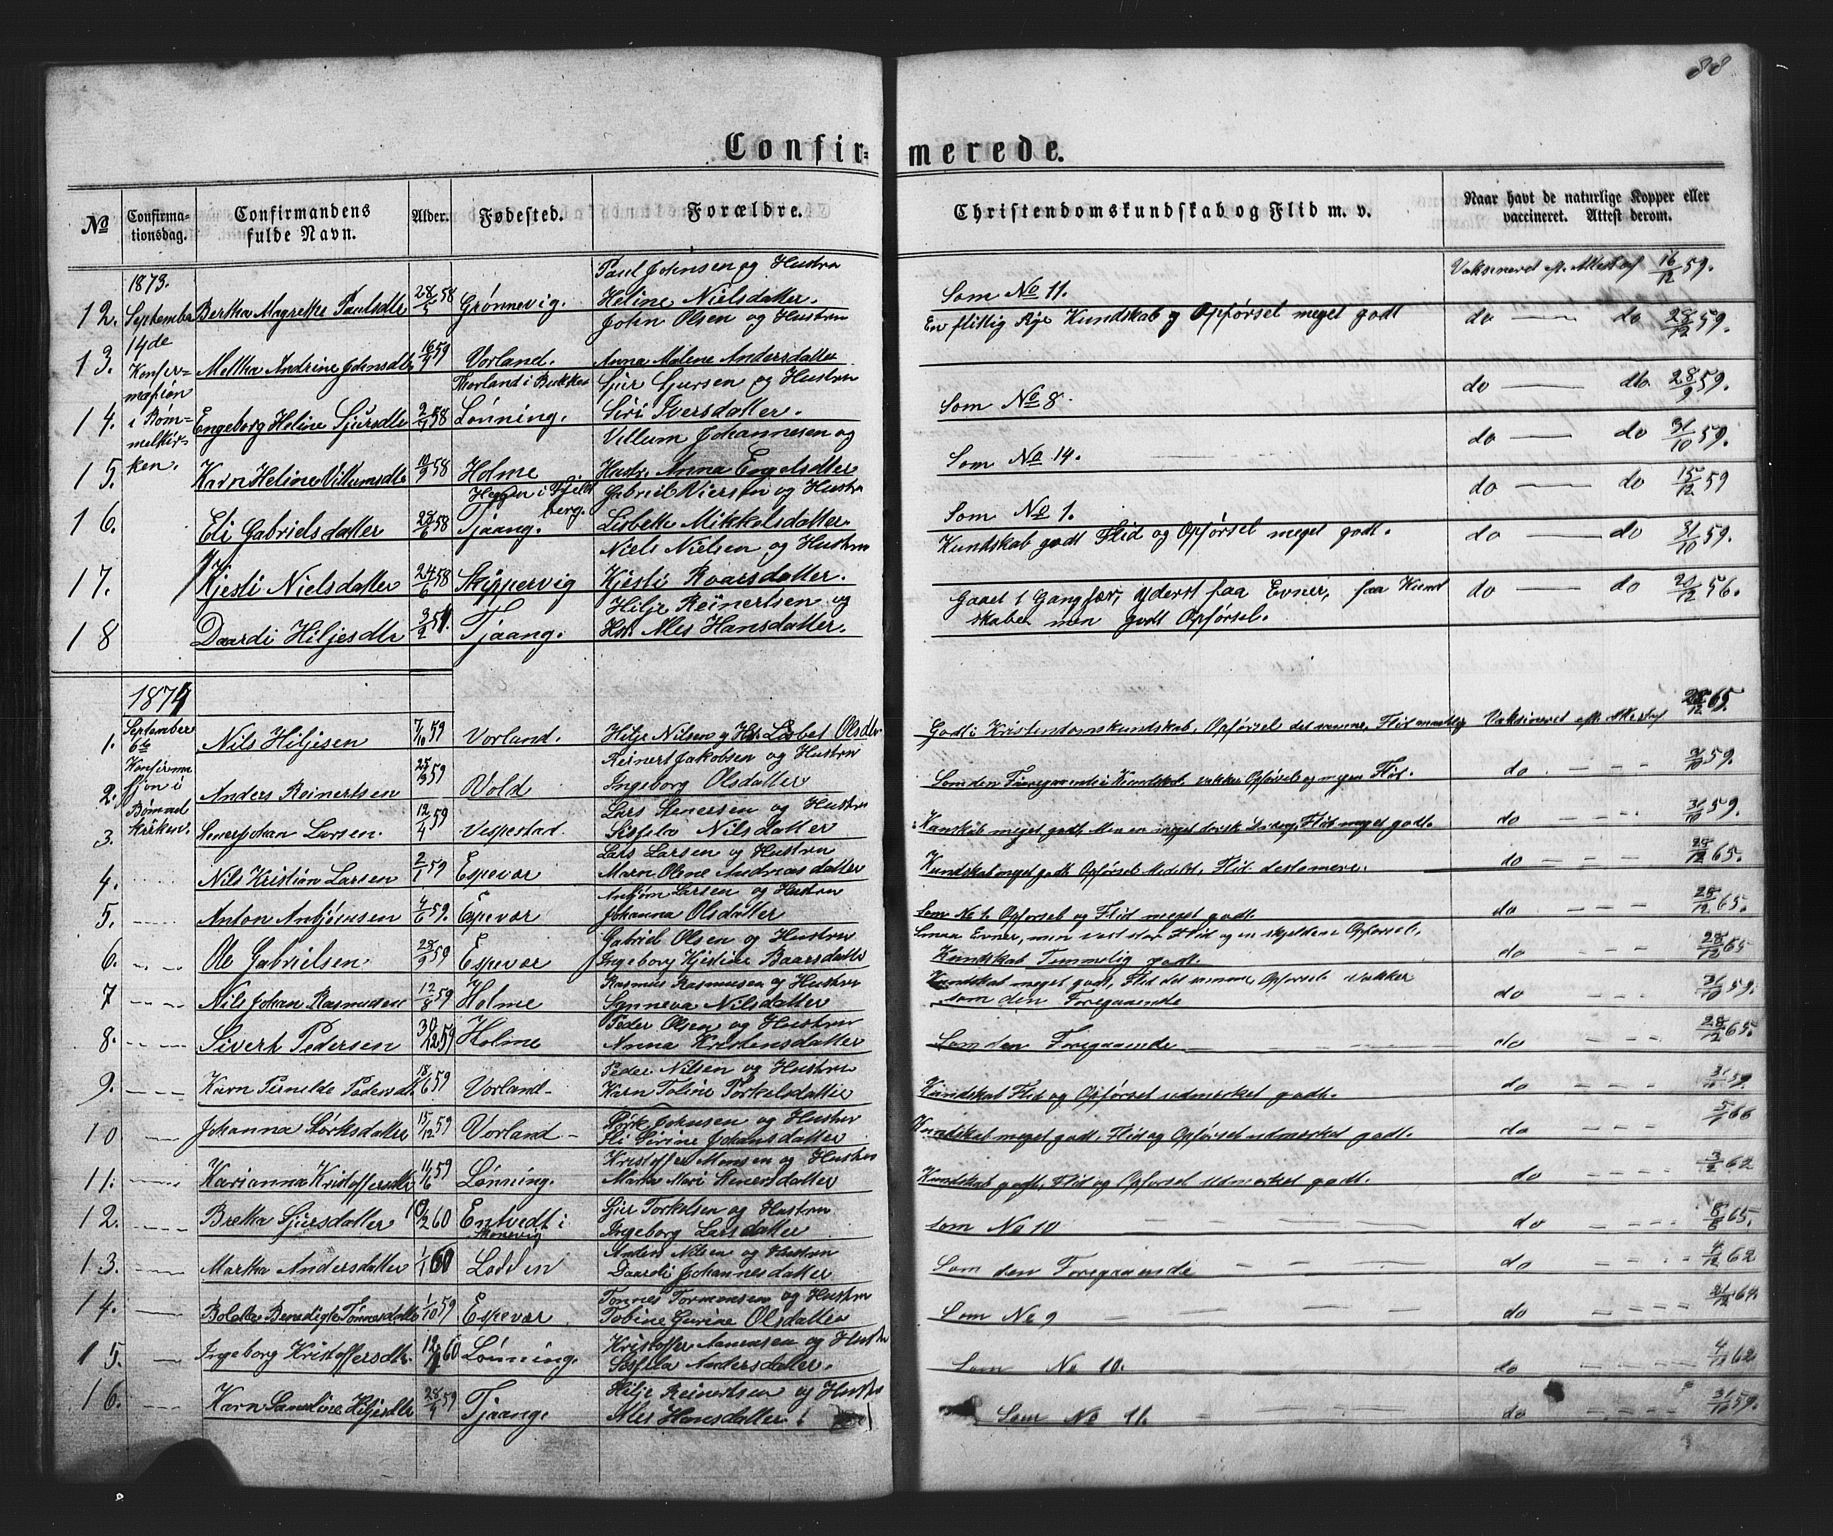 88
Confirmerede.
No
Confirmationsdag.
Confirmandens fulde Navn.
Alder.
Fødested.
Forældre.
Christendomskundskab og Flid m. v.
Naar havt de naturlige Kopper eller vaccineret. Attest derom.
1873. September 14de Konfirmasion i Bømmelkirken.
12. Bertha Magrethe Paulsdtr 28/5 58 Grønnevig. Paul Johnsen og Hustru Heline Nielsdatter. Som No 11. Vaksineret efter Attest af 16/12 59.
13. Andrine Johnsdtr 16/4 59 Vorland. John Olsen og Hustru Anna Malene Andersdatter En flittig Pige Kundskab og Opførsel meget godt do do 28/12 59.
14. Engeborg Heline Sjursdtr 2/4 58 Lønning. Sjur Sjursen og Hustru Siri Iversdatter. Som No 8. do do 28/9 59.
15. Karn Heline Villumsdtr 10/9 58 Holme Villum Johannesen og Hustr. Anna Engelsdatter Som No 14. do do 31/10 59.
16. Eli Gabrielsdatter 28/6 58 Tjaang. Gabriel Iversen og Hustru Lisbeth Mikkelsdatter. Som No 1. do do 15/12 59
17. Kjesti Nielsdatter 24/6 58 Skippervig Niels Nielsen og Hustru Kjesti Roarsdatter. Kundskab godt Flid og Opførsel meget godt. do do 31/10 59.
18 Daardi Hiljesdtr Tjaang. Hilje Reinertsen og Hstr Ales Hansdatter. Gaaet 1 Gang før, yderst faa Evner, faa Kundskaber men godt Opførsel. do do 20/12 56.
1874
September 6te Konfirmasjon i Bømmelkirken.
1. Nils Hiljesen 7/10 59 Vorland. Hilje Nilsen og Hst. Lisbet Olsdtr. Godt i Kristendomskundskab, Opførsel det samme, Flid Vaksineret eft. Attest af 28/12 65.
2. Anders Reinertsen 25/3 59 Vold Reinert Jakobsen og Hustru Ingeborg Olsdatter Som den Foregaaende i Kundskab vakker Opførsel og megen Flid. do 31/10 59.
3. Stener Johan Larsen. 12/4 59 Vespestad. Lars Stenersen og Hustru Nilsdatter Kundskab meget godt, Men en meget dorsk Flid meget godt. do 31/10 59.
4. Nils Kristian Larsen 2/1 59 Espevær Lars Larsen og Hustru Marn Olene Andreasdatter Kundskab meget godt Opførsel Flid destomere. do 28/12 65.
5. Anton Anbjørnsen 4/6 59. Espevær Anbjørn Larsen og Hustru Johanna Olsdatter Som No 1. Opførsel og Flid meget godt. do 28/12 65.
6. Ole Gabrielsen 28/9 59 Espevær Gabriel Olsen og Hustru Ingeborg Kjestine Baarsdatter Smaa Evner, men vist stor Flid og en skjelden Opførsel. Kundskab Temmelig godt. do 28/12 65
7 Nils Johan Rasmusen 12/8 59 Holme Rasmus Rasmusen og Hustru Sanneva Nilsdatter Kundskab meget godt, Flid det samme, Opførsel vakker som den Foregaaende do 31/10 59.
8. Sivert Pedersen 30/12 59 Holme Peder Olsen og Hustru Anna Kristensdatter Som den Foregaaende do 28/12 65.
9. Karn Pernilde Pedersdt 18/6 59 Vorland Peder Nilsen og Hustru Karn Toline Torkelsdatter Kundskab Flid og Opførsel udmerket godt. do 31/10 59.
10 Johanna Størksdatter 15/12 59 Vorland Størk Johnsen og Hustru Eli Sirine Johansdatter Kundskab meget godt, Flid og Opførsel udmerket godt. do 5/7 66
11. Karianna Kristoffersdtr 14/6 59 Lønning. Kristoffer Monsen og Hustru Marta Mari Stenersdatter Kundskab godt, Flid og Opførsel udmerket godt. do 3/2 62
12. Bretha Sjursdatter 10/2 60 Entvedt i Skonevig Sjur Torkelsen og Hustru Ingeborg Larsdatter som No 10 do 8/8 65.
13. Martha Andersdatter 1/1 60 Lodden Anders Nilsen og Hustru Daardi Johannesdatter Som den Foregaaende do 4/12 62
14. Bolette Benedigte Tønnesdtr 1/10 59 Espevær. Tønnes Tormonsen og Hustru Tobine Gurine Olsdatter Som No 9 do 31/12 64
15. Ingeborg Kristoffersdtr 60 Lønning. Kristoffer og Hustru Andersdatter. Som No 10. do 4/12 62
16. Karn Sandine Hiljesdtr 28/4 59 Tjaang. Hilje Reinertsen og Hustru Ales Hansdatter Som No 11. do 31/10 59.